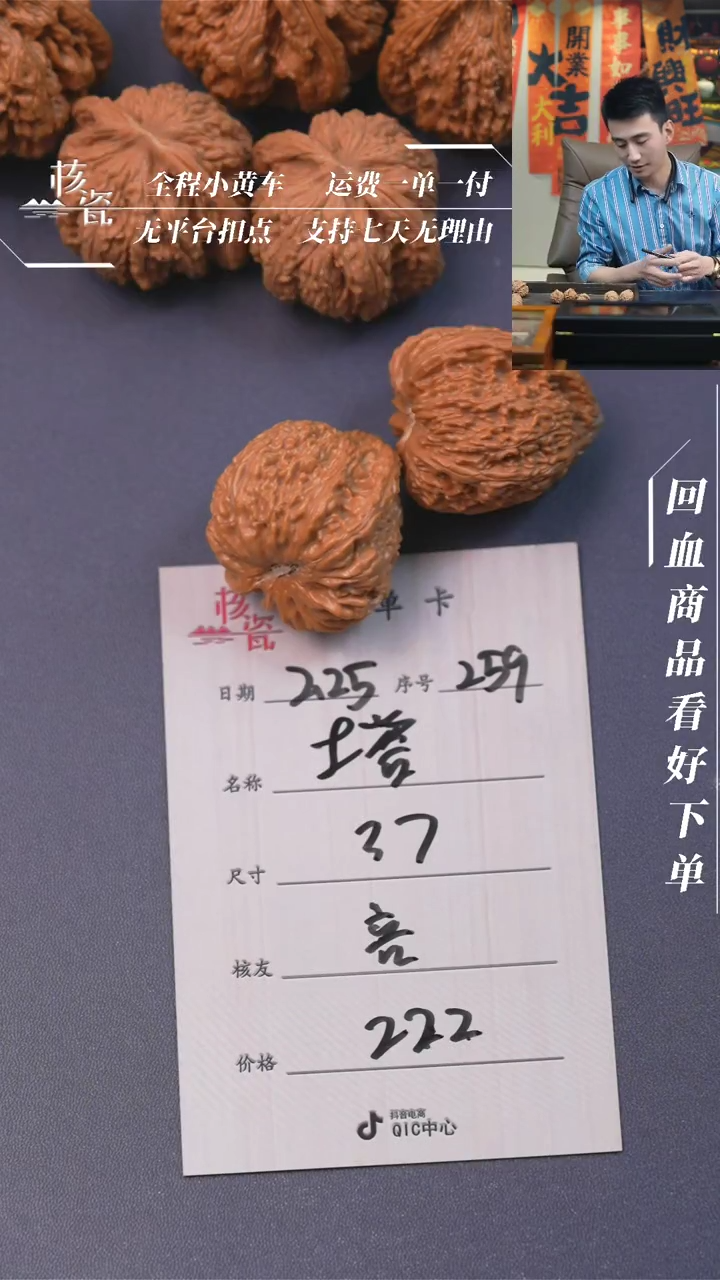 核瓷
全程小黄车 运费一单一付
无平台扣点 支持七天无理由
開業
大吉
大利
事事如
財興旺
回血商品看好下单
核瓷 单卡
日期 225 序号 259
名称 塔
尺寸 37
核友
价格 222
抖音电商
QIC中心